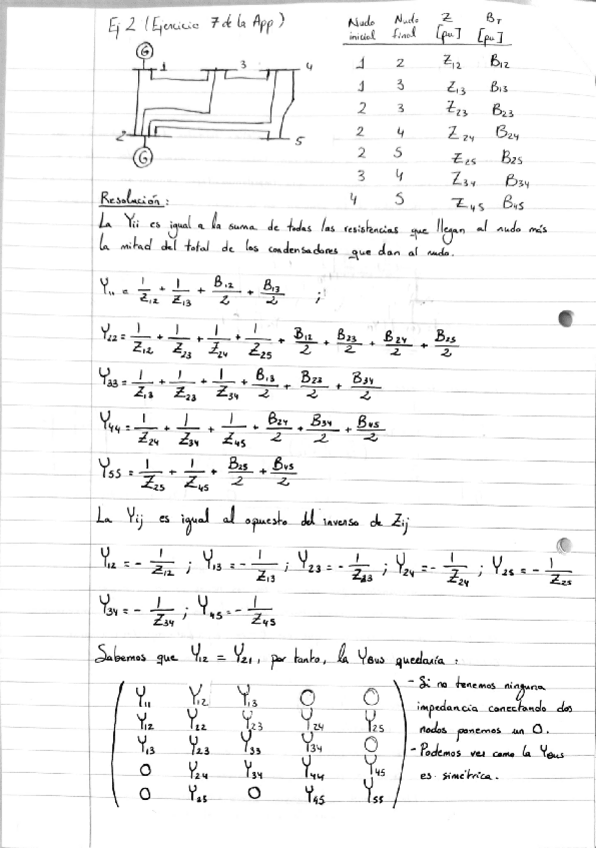 Ej 2 (Ejercicio 7 de la App)
G
1 3 4
2
G
5
Nudo inicial Nudo final Z [pu] B_T [pu]
1 2 Z12 B12
1 3 Z13 B13
2 3 Z23 B23
2 4 Z24 B24
2 5 Z25 B25
3 4 Z34 B34
4 5 Z45 B45
Resolución:
La Yii es igual a la suma de todas las resistencias que llegan al nudo más
la mitad del total de los condensadores que dan al nudo.
Y11 = 1/Z12 + 1/Z13 + B12/2 + B13/2 ;
Y22 = 1/Z12 + 1/Z23 + 1/Z24 + 1/Z25 + B12/2 + B23/2 + B24/2 + B25/2
Y33 = 1/Z13 + 1/Z23 + 1/Z34 + B13/2 + B23/2 + B34/2
Y44 = 1/Z24 + 1/Z34 + 1/Z45 + B24/2 + B34/2 + B45/2
Y55 = 1/Z25 + 1/Z45 + B25/2 + B45/2
La Yij es igual al opuesto del inverso de Zij
Y12 = - 1/Z12 ; Y13 = - 1/Z13 ; Y23 = - 1/Z23 ; Y24 = - 1/Z24 ; Y25 = - 1/Z25
Y34 = - 1/Z34 ; Y45 = - 1/Z45
Sabemos que Y12 = Y21, por tanto, la YBUS quedaría:
Y11 Y12 Y13 0 0
Y12 Y22 Y23 Y24 Y25
Y13 Y23 Y33 Y34 0
0 Y24 Y34 Y44 Y45
0 Y25 0 Y45 Y55
- Si no tenemos ninguna
impedancia conectando dos
nodos ponemos un 0.
- Podemos ver como la YBUS
es simétrica.